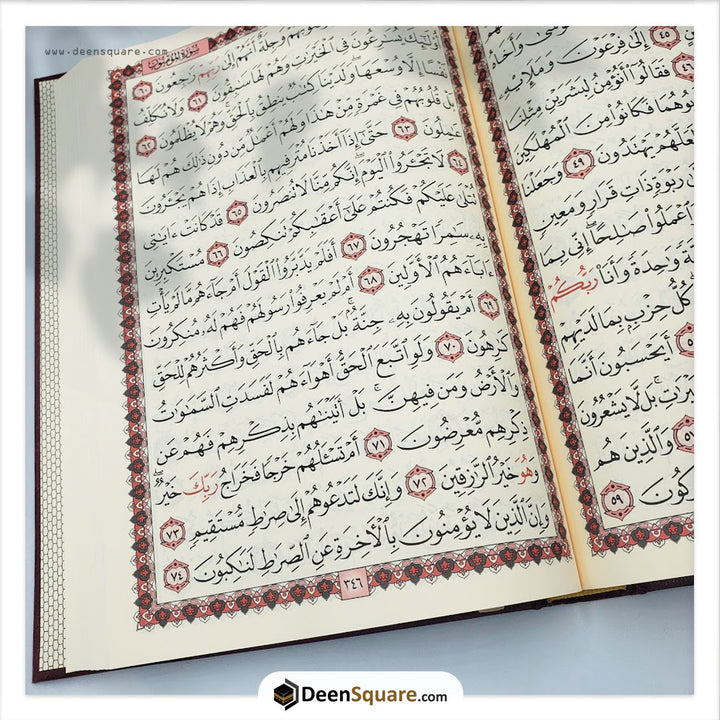 www.deensquare.com
٤٥ إِلَىٰ فِرْعَوْنَ وَمَلَإِيْهِ
٤٦ فَقَالُوٓا۟ أَنُؤْمِنُ لِبَشَرَيْنِ مِثْلِنَا
فَكَانُوا۟ مِنَ ٱلْمُهْلَكِينَ
لَعَلَّهُمْ يَهْتَدُونَ ٤٩ وَجَعَلْنَا
رَبْوَةٍ ذَاتِ قَرَارٍ وَمَعِينٍ
ٱعْمَلُوا۟ صَٰلِحًا إِنِّى بِمَا
وَٰحِدَةً وَأَنَا۠ رَبُّكُمْ
كُلُّ حِزْبٍۭ بِمَا لَدَيْهِمْ
أَيَحْسَبُونَ أَنَّمَا
بَل لَّا يَشْعُرُونَ
٥٧ وَٱلَّذِينَ هُم
٥٩
سُورَةُ المُؤْمِنُونَ
وَجِلَةٌ أَنَّهُمْ إِلَىٰ رَبِّهِمْ رَٰجِعُونَ ٦٠
أُو۟لَٰٓئِكَ يُسَٰرِعُونَ فِى ٱلْخَيْرَٰتِ وَهُمْ لَهَا سَٰبِقُونَ ٦١ وَلَا نُكَلِّفُ
نَفْسًا إِلَّا وُسْعَهَا وَلَدَيْنَا كِتَٰبٌ يَنطِقُ بِٱلْحَقِّ وَهُمْ لَا يُظْلَمُونَ ٦٢
بَلْ قُلُوبُهُمْ فِى غَمْرَةٍ مِّنْ هَٰذَا وَلَهُمْ أَعْمَٰلٌ مِّن دُونِ ذَٰلِكَ هُمْ لَهَا
عَٰمِلُونَ ٦٣ حَتَّىٰٓ إِذَآ أَخَذْنَا مُتْرَفِيهِم بِٱلْعَذَابِ إِذَا هُمْ يَجْـَٔرُونَ
٦٤ لَا تَجْـَٔرُوا۟ ٱلْيَوْمَ إِنَّكُم مِّنَّا لَا تُنصَرُونَ ٦٥ قَدْ كَانَتْ ءَايَٰتِى
تُتْلَىٰ عَلَيْكُمْ فَكُنتُمْ عَلَىٰٓ أَعْقَٰبِكُمْ تَنكِصُونَ ٦٦ مُسْتَكْبِرِينَ
بِهِۦ سَٰمِرًا تَهْجُرُونَ ٦٧ أَفَلَمْ يَدَّبَّرُوا۟ ٱلْقَوْلَ أَمْ جَآءَهُم مَّا لَمْ يَأْتِ
ءَابَآءَهُمُ ٱلْأَوَّلِينَ ٦٨ أَمْ لَمْ يَعْرِفُوا۟ رَسُولَهُمْ فَهُمْ لَهُۥ مُنكِرُونَ
٦٩ أَمْ يَقُولُونَ بِهِۦ جِنَّةٌۢ بَلْ جَآءَهُم بِٱلْحَقِّ وَأَكْثَرُهُمْ لِلْحَقِّ
كَٰرِهُونَ ٧٠ وَلَوِ ٱتَّبَعَ ٱلْحَقُّ أَهْوَآءَهُمْ لَفَسَدَتِ ٱلسَّمَٰوَٰتُ
وَٱلْأَرْضُ وَمَن فِيهِنَّ بَلْ أَتَيْنَٰهُم بِذِكْرِهِمْ فَهُمْ عَن
ذِكْرِهِم مُّعْرِضُونَ ٧١ أَمْ تَسْـَٔلُهُمْ خَرْجًا فَخَرَاجُ رَبِّكَ خَيْرٌ
وَهُوَ خَيْرُ ٱلرَّٰزِقِينَ ٧٢ وَإِنَّكَ لَتَدْعُوهُمْ إِلَىٰ صِرَٰطٍ مُّسْتَقِيمٍ ٧٣
وَإِنَّ ٱلَّذِينَ لَا يُؤْمِنُونَ بِٱلْأَخِرَةِ عَنِ ٱلصِّرَٰطِ لَنَٰكِبُونَ ٧٤
٣٤٦
DeenSquare.com